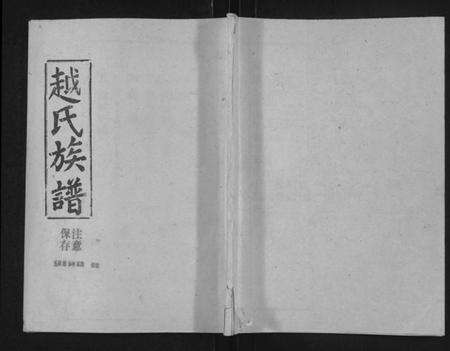 越氏族譜
注意
保存